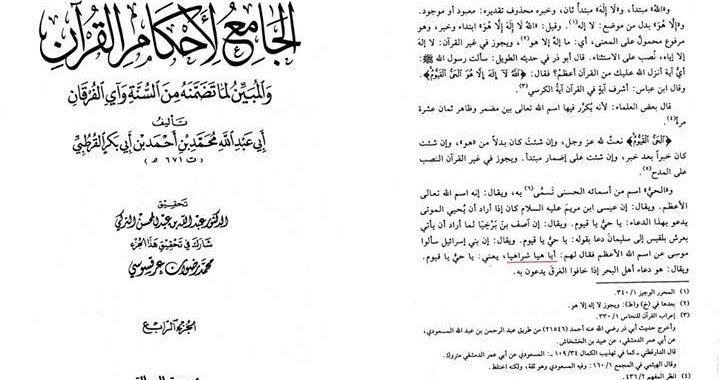 الجامع لأحكام القرآن
والمبين لما تضمنه من السنة وآي الفرقان
تأليف
أبي عبد الله محمد بن أحمد بن أبي بكر القرطبي
(ت ٦٧١ هـ)
تحقيق
الدكتور عبد الله بن عبد المحسن التركي
شارك في تحقيق هذا الجزء
محمد رضوان عرقسوسي
الجزء الرابع
و«اللهُ» مبتدأ، و«لَا إِلَٰهَ» مبتدأ ثان، وخبره محذوف تقديره: معبود أو موجود.
و«إِلَّا هُوَ» بدل من موضع: لا إله(١). وقيل: «اللهُ لَا إِلَٰهَ إِلَّا هُوَ» ابتداء وخبر، وهو
مرفوع محمول على المعنى، أي: ما إلهٌ إلا هو(٢)، ويجوز في غير القرآن: لا إله
إلا إياه، نصب على الاستثناء. قال أبو ذر في حديثه الطويل: سألت رسول الله ﷺ:
أي آية أنزل الله عليك من القرآن أعظم؟ فقال: ﴿اللَّهُ لَا إِلَٰهَ إِلَّا هُوَ الْحَيُّ الْقَيُّومُ﴾.
وقال ابن عباس: أشرف آية في القرآن آية الكرسي(٣).
قال بعض العلماء: لأنه يُكرَّر فيها اسم الله تعالى بين مضمر وظاهر ثمان عشرة
مرة(٤).
﴿الْحَيُّ الْقَيُّومُ﴾ نعت لله عز وجل، وإن شئتَ كان بدلاً من «هو»، وإن شئت
كان خبراً بعد خبر، وإن شئت على إضمار مبتدأ. ويجوز في غير القرآن النصب
على المدح(٥).
و«الحيُّ» اسم من أسمائه الحسنى تَسمَّى(٦) به، ويقال: إنه اسم الله تعالى
الأعظم. ويقال: إن عيسى ابن مريم عليه السلام كان إذا أراد أن يُحيي الموتى
يدعو بهذا الدعاء: يا حيُّ يا قيوم. ويقال: إن آصف بنَ بَرْخِيَا لما أراد أن يأتي
بعرش بلقيس إلى سليمان دعا بقوله: يا حيُّ يا قيوم. ويقال: إن بني إسرائيل سألوا
موسى عن اسم الله الأعظم فقال لهم: أيا هيا شراهيا، يعني: يا حيُّ يا قيوم.
ويقال: هو دعاء أهل البحر إذا خافوا الغرقَ يدعون به.
(١) المحرر الوجيز ١/ ٣٤٠.
(٢) بعدها في (خ) و(ظ): ويجوز لا إله إلا هو.
(٣) إعراب القرآن للنحاس ١/ ٣٣٠.
وأخرج حديث أبي ذر رضي الله عنه أحمد (٢١٥٤٦) من طريق عبد الرحمن بن عبد الله المسعودي،
عن أبي عمر الدمشقي، عن عبيد بن الخشخاش،
قال الدارقطني ـ كما في تهذيب الكمال ٣٤/ ١٠٩ ـ: المسعودي عن أبي عمر الدمشقي متروك.
وقال الهيثمي في المجمع ١/ ١٦٠: وفيه المسعودي وهو ثقة، ولكنه اختلط.
(٤) انظر المفهم ٢/ ٤٣٦.